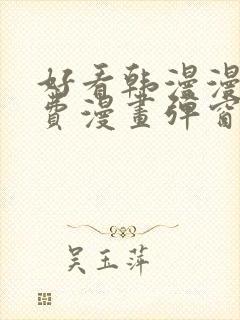 好看韩漫漫
费漫画弹窗
吴玉萍